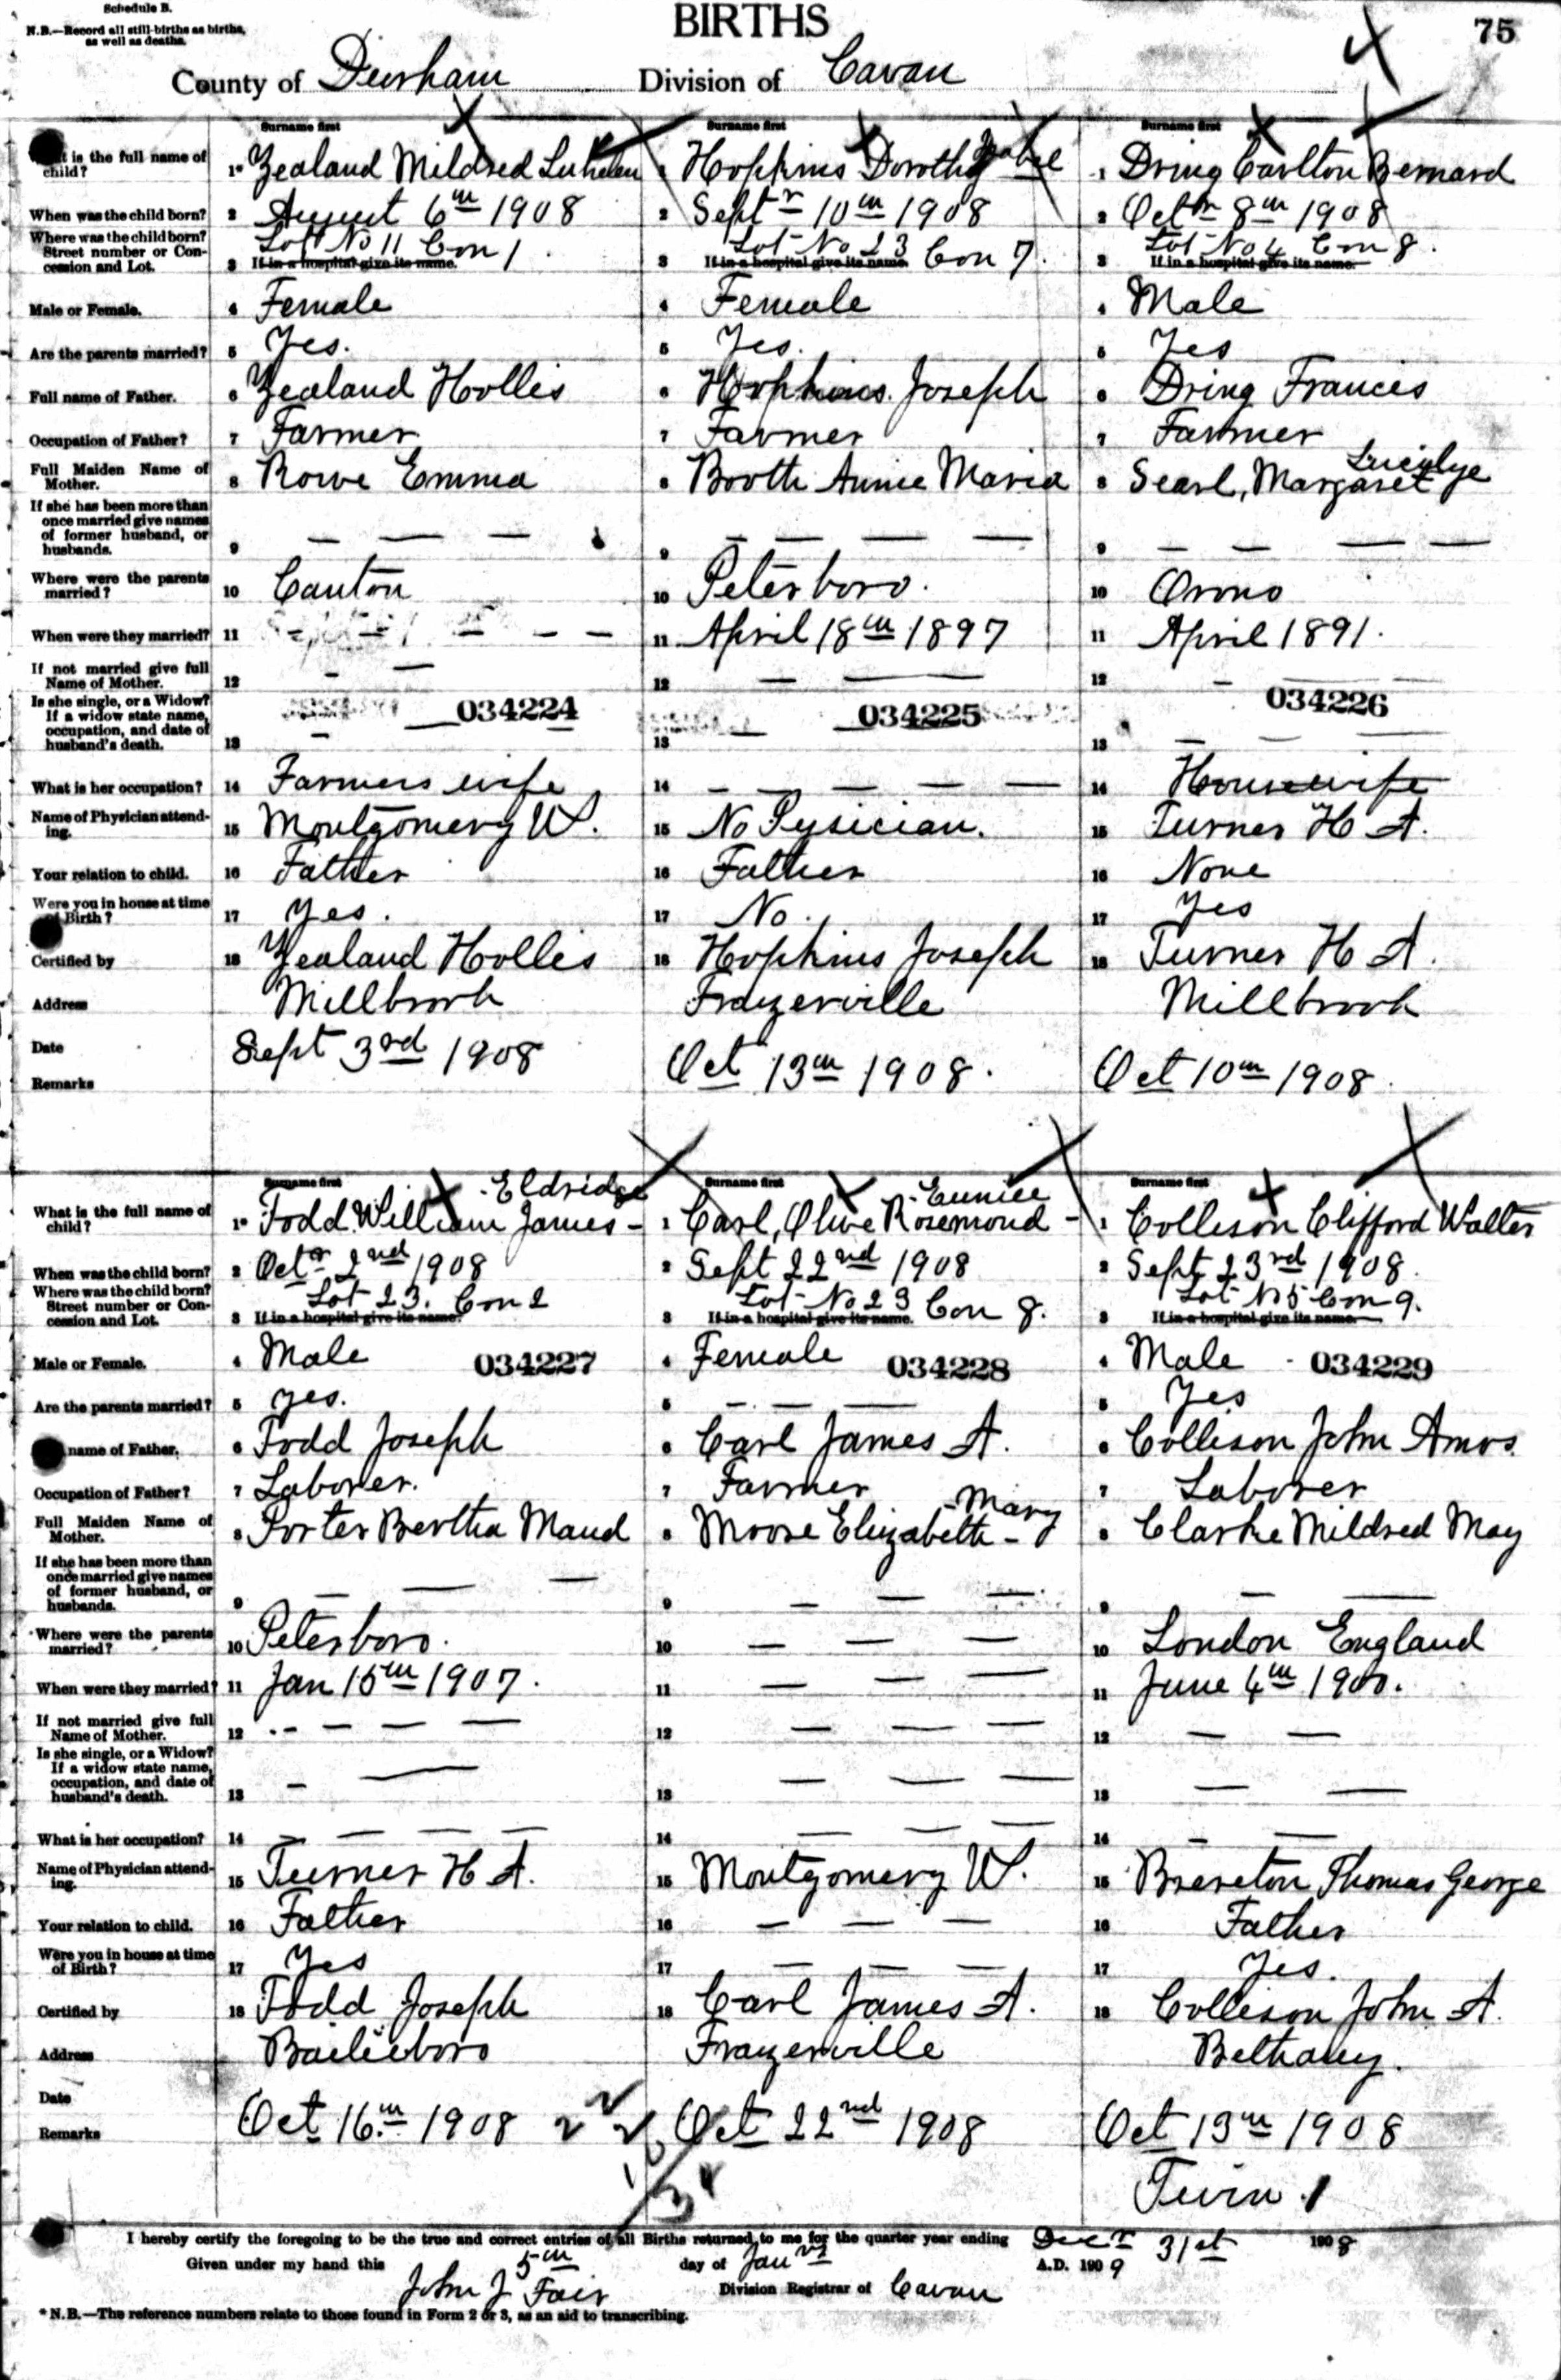 Schedule B.
N.B.—Record all still-births as births, as well as deaths.
BIRTHS
75
County of Durham Division of Cavan
Surname first
Surname first
Surname first
What is the full name of child?
1* Zealand Mildred
1 Hopkins Dorothy Isabel
1 Dring Carlton Bernard
When was the child born?
2 August 6th 1908
2 Septr 10th 1908
2 Octbr 8th 1908
Where was the child born? Street number or Concession and Lot.
3 If in a hospital give its name. Lot No 11 Con 1
3 If in a hospital give its name. Lot No 23 Con 7.
3 If in a hospital give its name. Lot No 4 Con 8.
Male or Female.
4 Female
4 Female
4 Male
Are the parents married?
5 Yes.
5 Yes.
5 Yes
Full name of Father.
6 Zealand Hollis
6 Hopkins Joseph
6 Dring Francis
Occupation of Father?
7 Farmer
7 Farmer
7 Farmer
Full Maiden Name of Mother.
8 Rowe Emma
8 Booth Annie Maria
8 Searl, Margaret
If she has been more than once married give names of former husband, or husbands.
9 — — —
9 — — — —
9 — — — —
Where were the parents married?
10 Canton
10 Peterboro.
10 Orono
When were they married?
11 — — — —
11 April 18th 1897
11 April 1891.
If not married give full Name of Mother.
12 — —
12 — —
12 — —
Is she single, or a Widow? If a widow state name, occupation, and date of husband's death.
13 — 034224
13 — 034225
13 — — — 034226
What is her occupation?
14 Farmers wife
14 — — — —
14 Housewife
Name of Physician attending.
15 Montgomery W.
15 No Pysician.
15 Turner H A.
Your relation to child.
16 Father
16 Father
16 None
Were you in house at time of Birth?
17 Yes.
17 No.
17 Yes
Certified by
18 Zealand Hollis
18 Hopkins Joseph
18 Turner H A.
Address
Millbrook
Frazerville
Millbrook
Date
Sept 3rd 1908
Oct 13th 1908.
Oct 10th 1908.
Remarks
Surname first
Surname first
Surname first
What is the full name of child?
1* Todd William James - Eldridge
1 Carl, Olive Rosemond - Eunice
1 Collison Clifford Walter
When was the child born?
2 Octr 2nd 1908
2 Sept 22nd 1908
2 Sept 23rd 1908.
Where was the child born? Street number or Concession and Lot.
3 If in a hospital give its name. Lot 23. Con 2
3 If in a hospital give its name. Lot No 23 Con 8.
3 If in a hospital give its name. Lot No 5 Con 9.
Male or Female.
4 Male 034227
4 Female 034228
4 Male 034229
Are the parents married?
5 Yes.
5 — — —
5 Yes
name of Father.
6 Todd Joseph
6 Carl James A.
6 Collison John Amos.
Occupation of Father?
7 Laborer.
7 Farmer
7 Laborer
Full Maiden Name of Mother.
8 Porter Bertha Maud
8 Moore Elizabeth - Mary
8 Clarke Mildred May
If she has been more than once married give names of former husband, or husbands.
9 — — —
9 — — —
9 — —
Where were the parents married?
10 Peterboro.
10 — — —
10 London England
When were they married?
11 Jan 15th 1907.
11 — — —
11 June 4th 1900.
If not married give full Name of Mother.
12 — — — —
12 — — —
12 — —
Is she single, or a Widow? If a widow state name, occupation, and date of husband's death.
13 — —
13 — — —
13 — —
What is her occupation?
14 — — — —
14 — — —
14 — —
Name of Physician attending.
15 Turner H A.
15 Montgomery W.
15 Brereton Thomas George
Your relation to child.
16 Father
16 — — —
16 Father
Were you in house at time of Birth?
17 Yes
17 — — —
17 Yes.
Certified by
18 Todd Joseph
18 Carl James A.
18 Collison John A.
Address
Bailieboro
Frazerville
Bethany.
Date
Oct 16th 1908
Oct 22nd 1908
Oct 13th 1908
Remarks
Twin. 1
I hereby certify the foregoing to be the true and correct entries of all Births returned to me for the quarter year ending Decr 31st 1908
Given under my hand this 5th day of Jany A.D. 1909
John J Fair Division Registrar of Cavan
* N.B.—The reference numbers relate to those found in Form 2 or 3, as an aid to transcribing.